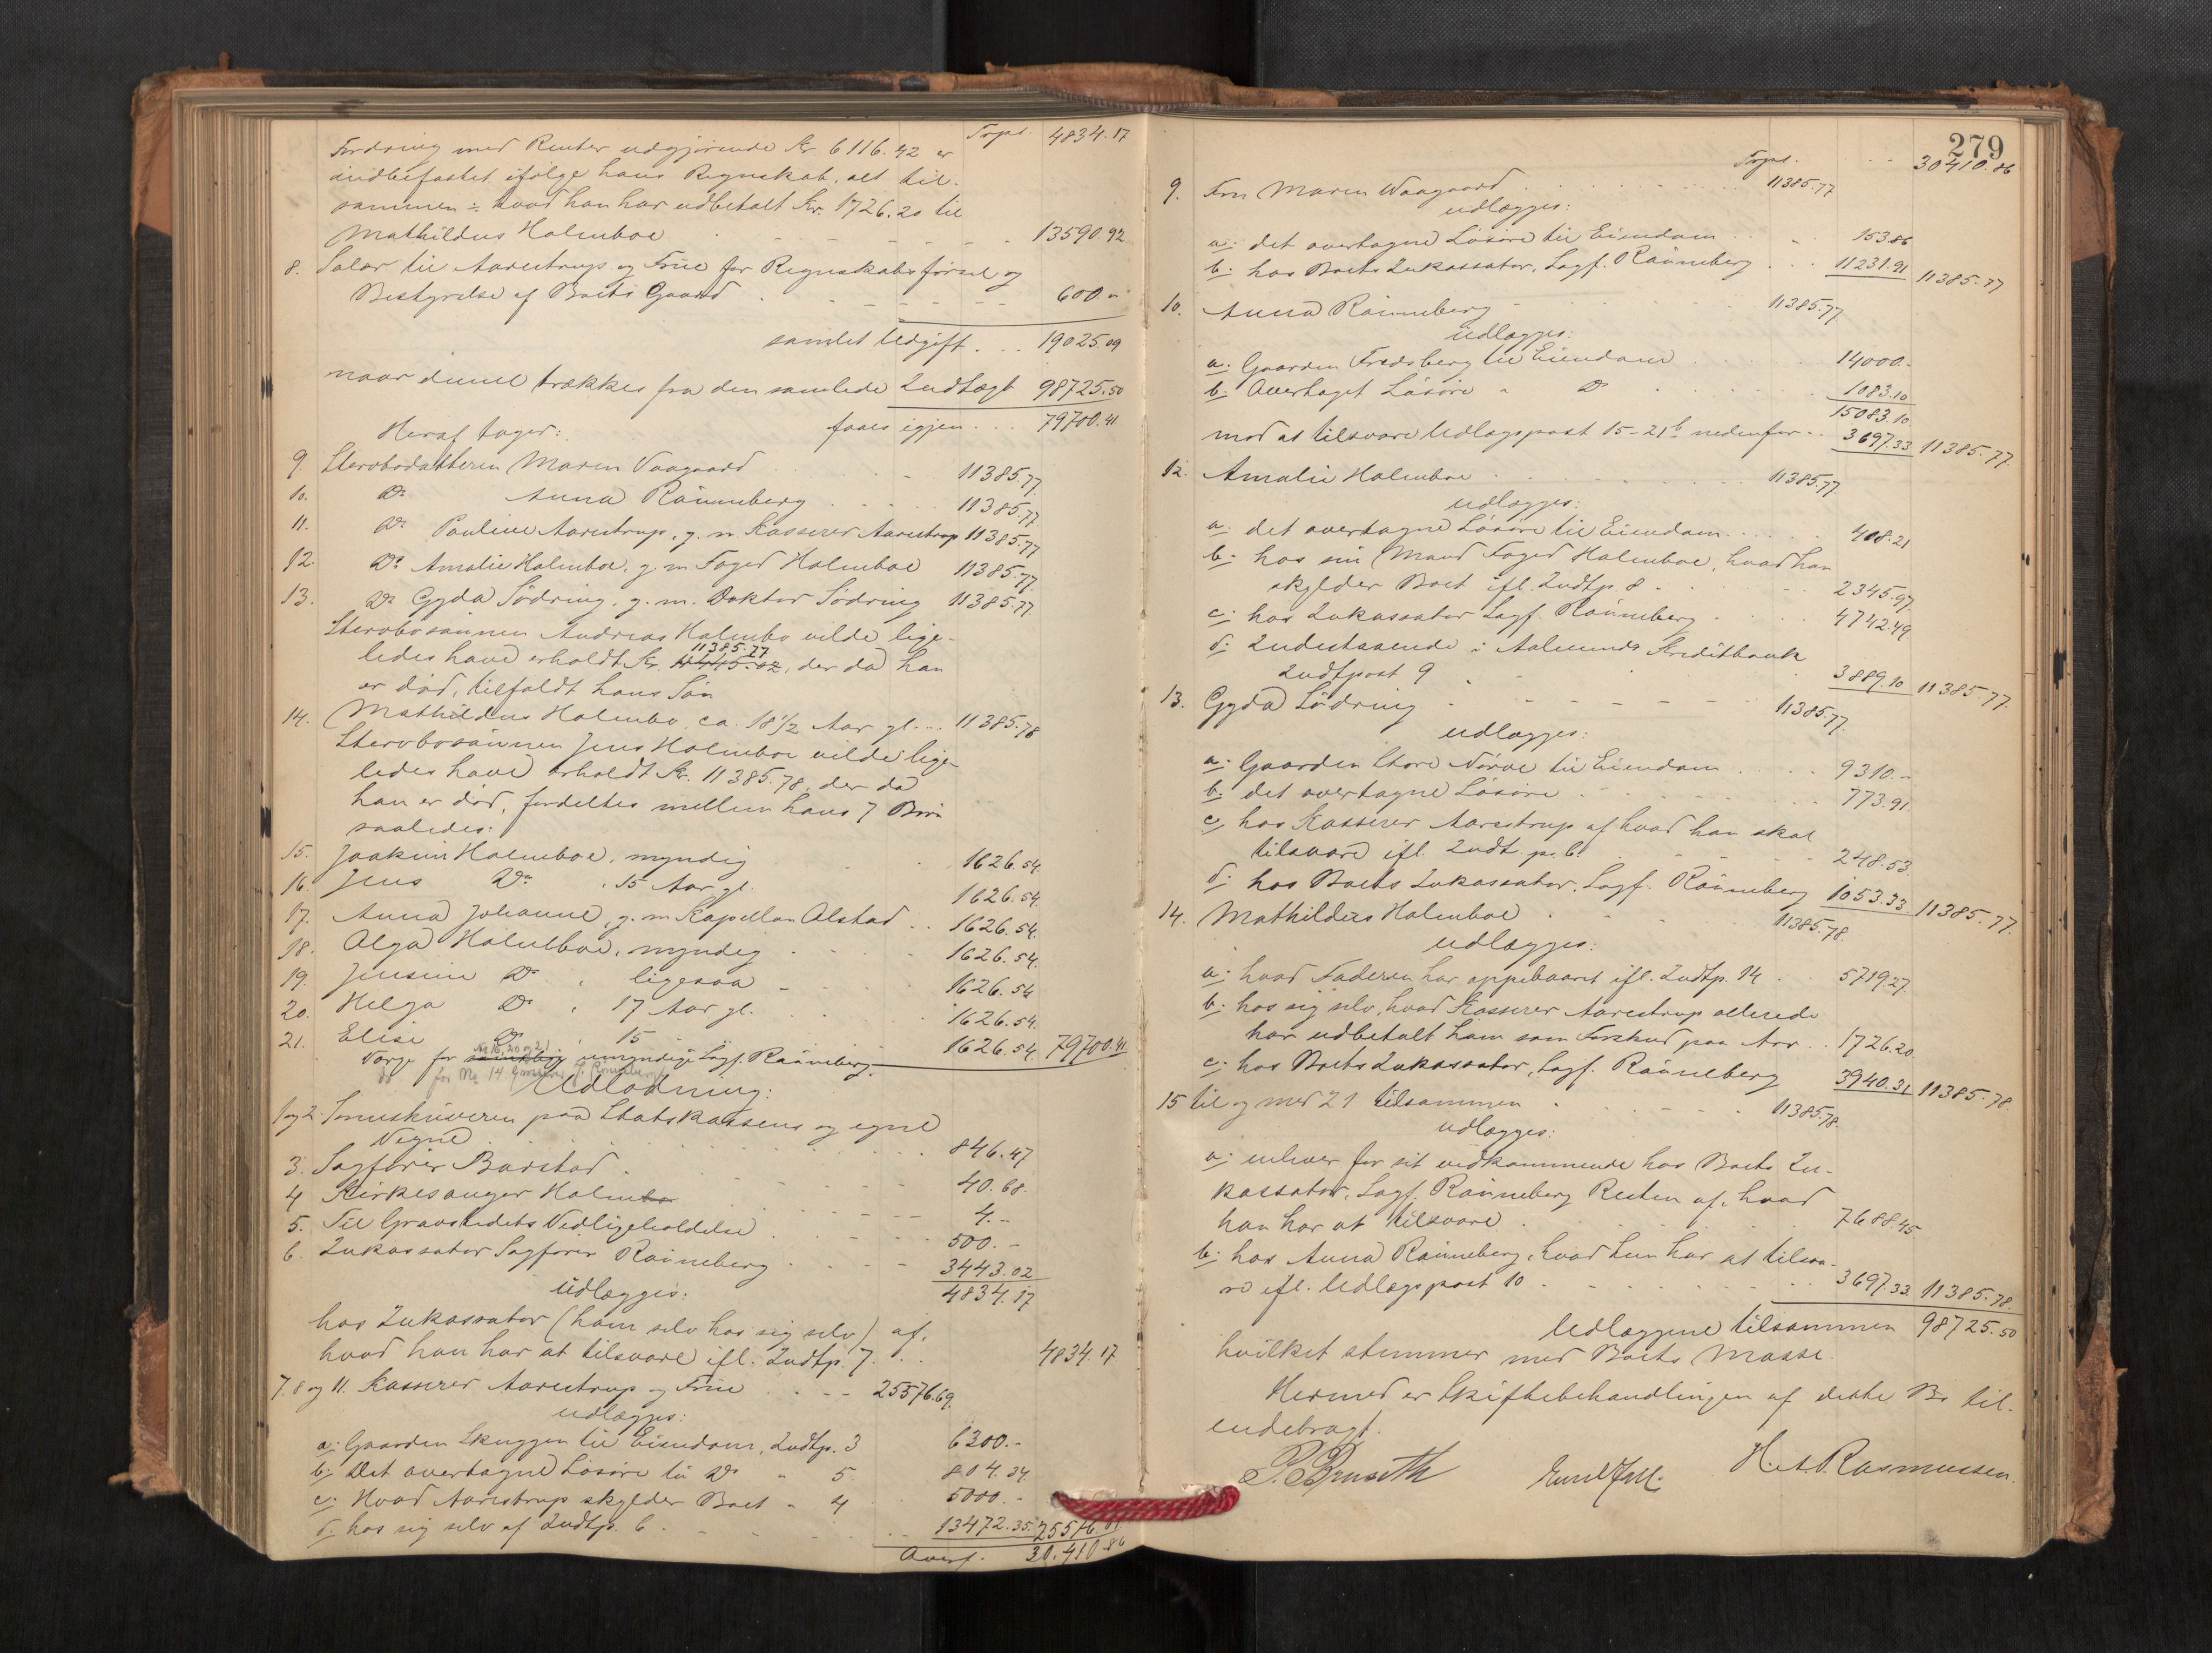 Trpt. 4834.17
Fordring med Renter udgjørende Kr. 6116.42 er
indbefattet ifølge hans Regnskab, alt til-
sammen ÷ hvad han har udbetalt Kr. 1726.20 til
Mathildus Holmboe 13590.92
8. Salær til Aarestrup og Frue for Regnskabsførsel og
Bestyrelse af Boets Gaard 600.-
samlet Udgift 19025.09
naar denne trækkes fra den samlede Indtægt 98725.50
faaes igjen 79700.41
Heraf tager:
9. Stervbodatteren Maren Vaagaard 11385.77
10. Do Anna Rønneberg 11385.77
11. Do Pauline Aarestrup, g. m. Kasserer Aarestrup 11385.77
12. Do Amalie Holmboe, g. m. Foged Holmboe 11385.77
13. Do Gyda Sødring, g. m. Doktor Sødring 11385.77
Stervbosønnen Andreas Holmbo vilde lige-
11385.77
ledes have erholdt Kr. 11445.02, der da han
er død, tilfaldt hans Søn
14. Mathildus Holmbo, ca. 18 1/2 Aar gl. 11385.78
Stervbosønnen Jens Holmboe vilde lige-
ledes have erholdt Kr. 11385.78, der da
han er død, fordeltes mellem hans 7 Børn
saaledes:
15. Joakim Holmboe, myndig 1626.54
16. Jens Do, 15 Aar gl. 1626.54
17. Anna Johanne, g. m. Kapellan Alstad 1626.54
18. Olga Holmboe, myndig 1626.54
19. Jensine Do, ligesaa 1626.54
20. Helga Do, 17 Aar gl. 1626.54
21. Elise Do, 15 1626.54 79700.41
No 16, 20 og 21
Værge for umyndige Sagf. Rønneberg.
do for No 14 J. Rønneberg
Udlodning:
1 og 2. Sorenskriveren paa Statskassens og egne
Vegne 846.47
3. Sagfører Barstad 40.68
4 Kirkesanger Holmboe 4.-
5. Til Gravstedets Vedligeholdelse 500.-
6. Inkassator Sagfører Rønneberg 3443.02
4834.17
udlægges:
hos Inkassator (ham selv hos sig selv) af,
hvad han har at tilsvare ifl. Indtp. 7. 4834.17
7. 8 og 11. Kasserer Aarestrup og Frue 25576.69
udlægges:
a: Gaarden Skuggen til Eiendom, Indtp. 3 6300.-
b: Det overtagne Løsøre til Do " 5 804.34
c: Hvad Aarestrup skylder Boet " 4 5000.-
d. hos sig selv af Indtp. 6 13472.35 25576.69
Overf. 30.410.86
279
Trpt. 30410.86
9. Fru Maren Waagaard 11385.77
udlægges:
a: det overtagne Løsøre til Eiendom 153.86
b: hos Boets Inkassator, Sagf. Rønneberg 11231.91 11385.77
10. Anna Rønneberg 11385.77
udlægges:
a: Gaarden Fredsberg til Eiendom 14000.-
b: Overtaget Løsøre " Do 1083.10
15083.10
mod at tilsvare Udlægspost 15-21 b nedenfor 3697.33 11385.77
12. Amalie Holmboe 11385.77
udlægges:
a. det overtagne Løsøre til Eiendom 408.21
b. hos sin Mand Foged Holmboe, hvad han
skylder Boet ifl. Indtp. 8 2345.97
c: hos Inkassator Sagf. Rønneberg 4742.49
d: Indestaaende i Aalesunds Kreditbank
Indtpost 9 3889.10 11385.77
13. Gyda Sødring 11385.77
udlægges:
a: Gaarden Store Nørve til Eiendom 9310.-
b. det overtagne Løsøre 773.91
c. hos Kasserer Aarestrup af hvad han skal
tilsvare ifl. Indt. p. 6. 248.53
d: hos Boets Inkassator, Sagf. Rønneberg 1053.33 11385.77
14. Mathildus Holmboe 11385.78
udlægges:
a: hvad Faderen har oppebaaret ifl. Indtp. 14 5719.27
b: hos sig selv, hvad Kasserer Aarestrup allerede
har udbetalt ham som Forskud paa Arv 1726.20
c: hos Boets Inkassator, Sagf. Rønneberg 3940.31 11385.78
15 til og med 21 tilsammen 11385.78
udlægges:
a: enhver for sit vedkommende hos Boets In-
kassator, Sagf. Rønneberg Resten af, hvad
han har at tilsvare 7688.45
b: hos Anna Rønneberg, hvad hun har at tilsva-
re ifl. Udlægspost 10 3697.33 11385.78
Udlæggene tilsammen 98725.50
hvilket stemmer med Boets Masse.
Hermed er Skiftebehandlingen af dette Bo til-
endebragt.
P. Bruseth H. A. Rasmussen.